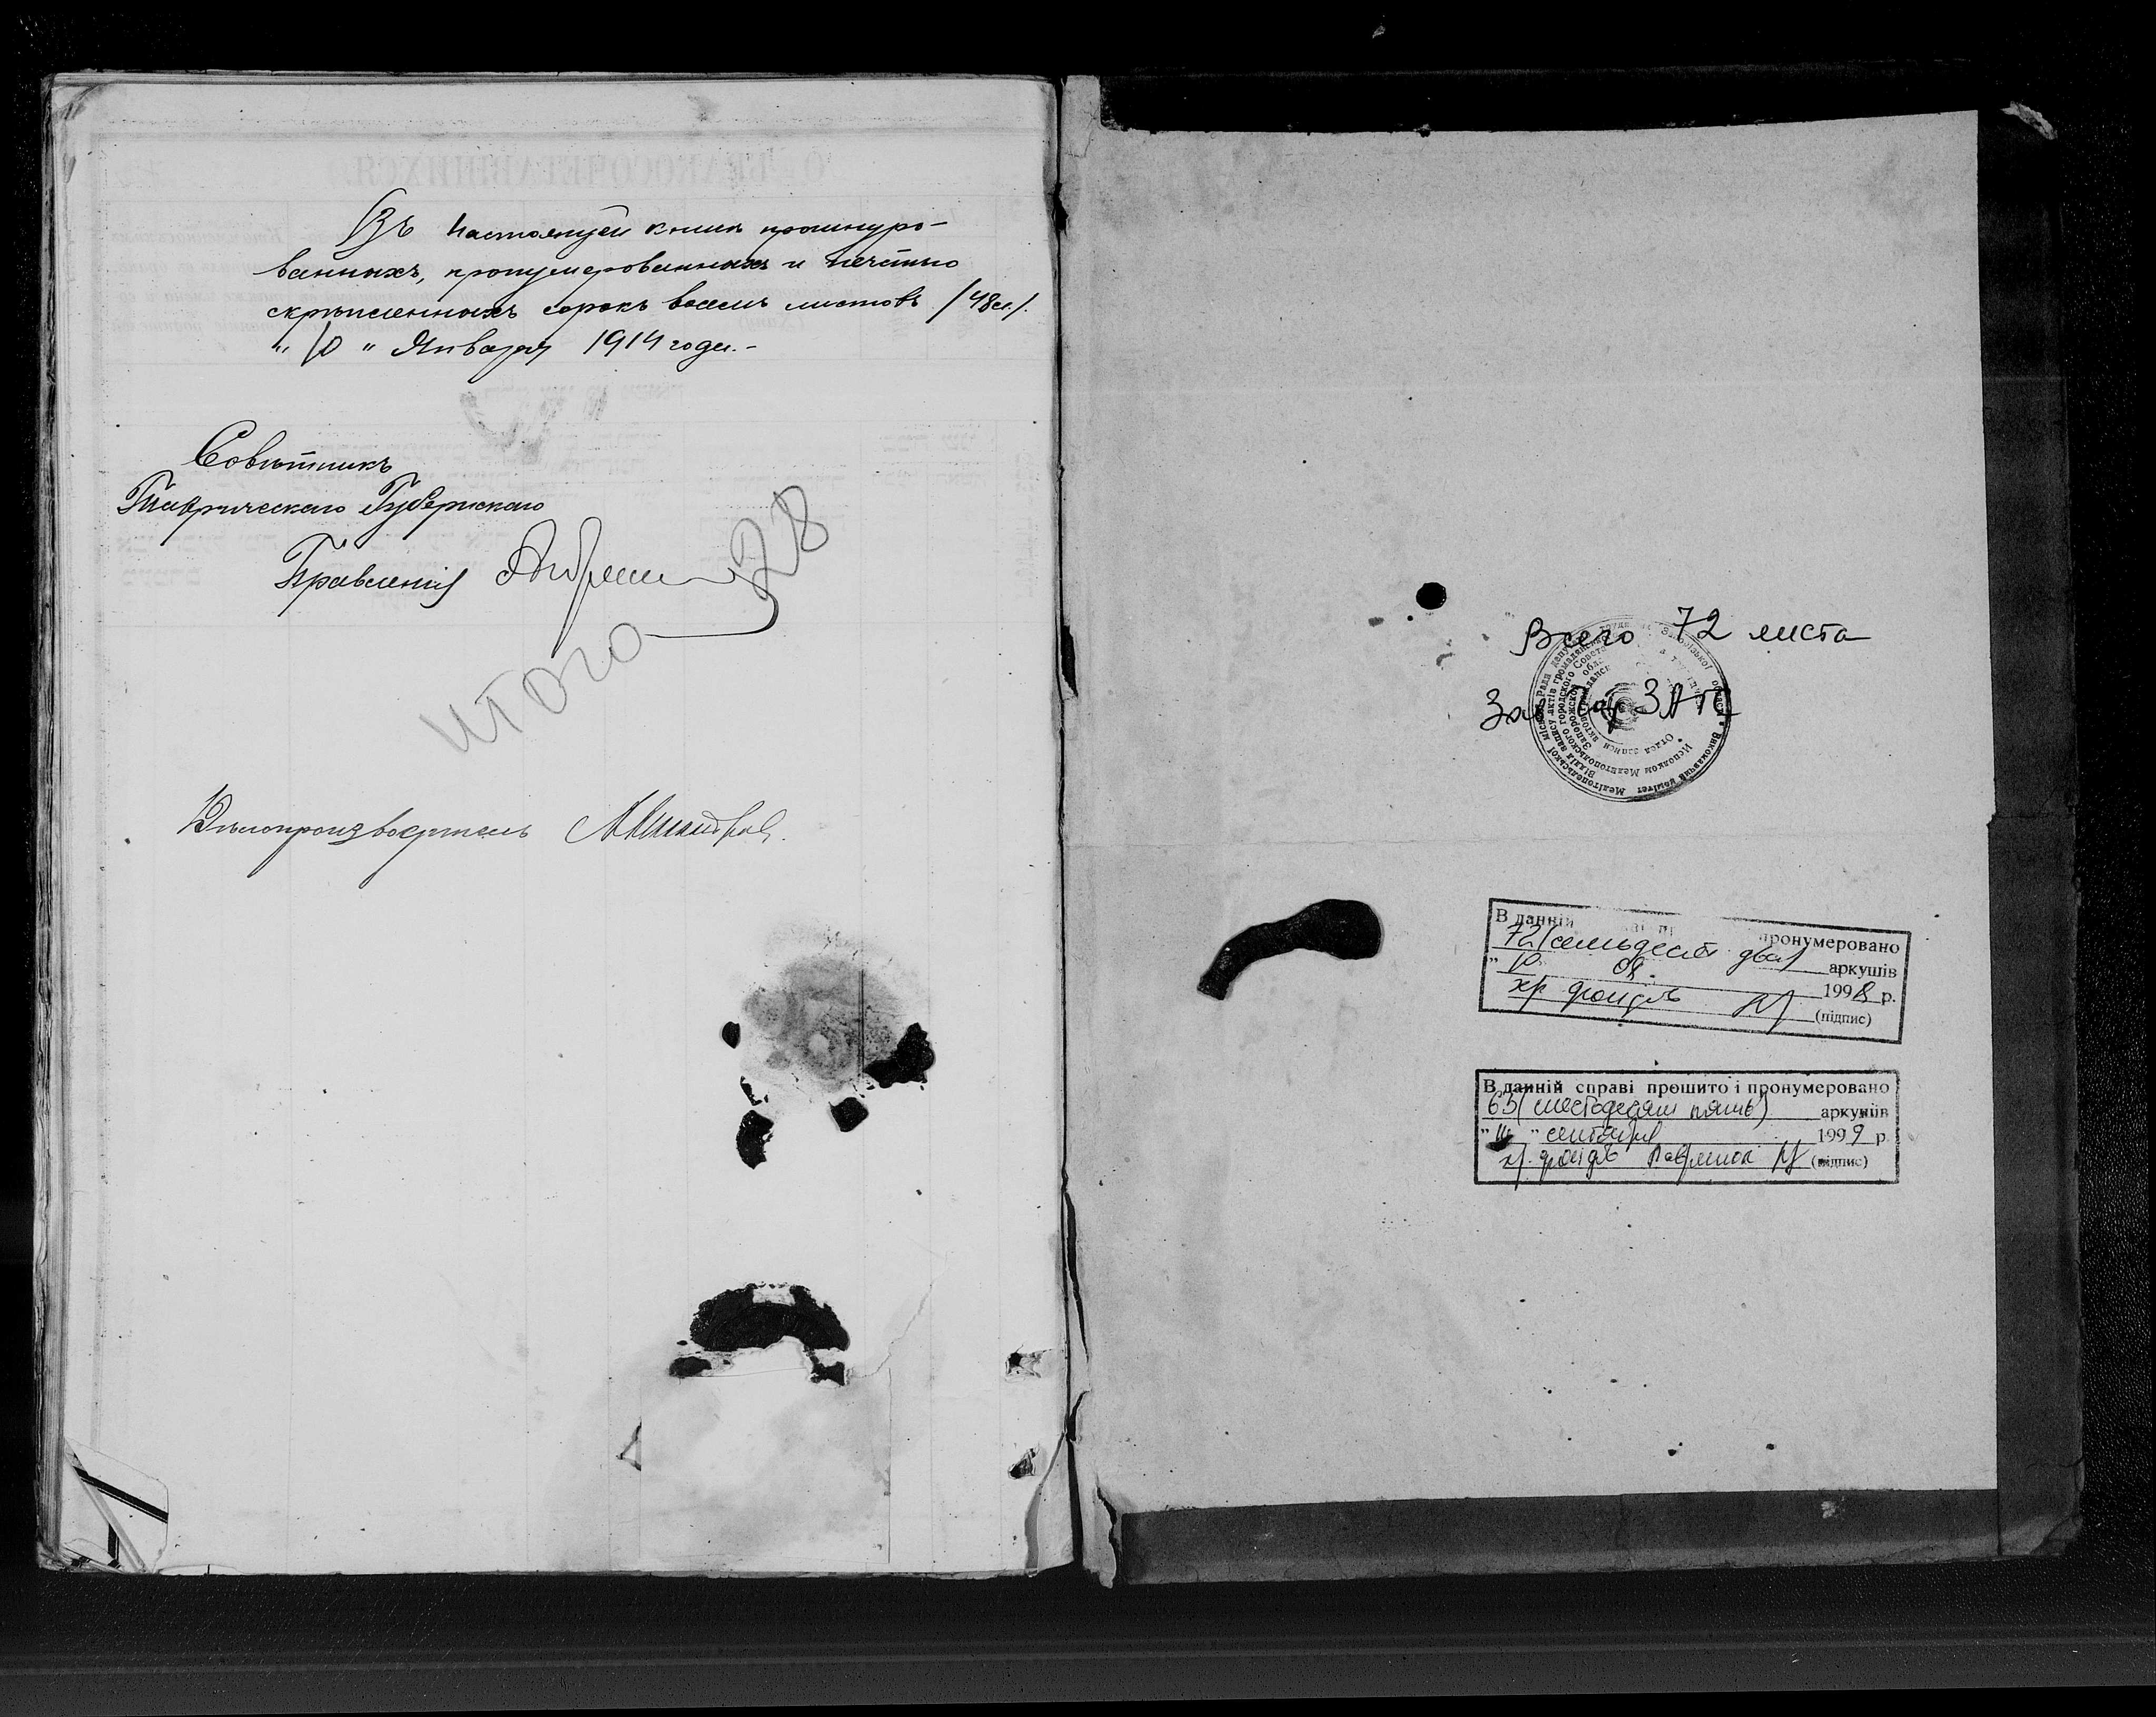 Въ настоящей книгѣ прошнуро-
ванныхъ, пронумерованныхъ и печатью
скрѣпленныхъ сорокъ восемь листовъ /48 л./.
" 10 " Января 1914 года.-
Совѣтникъ
Таврическаго Губернскаго
Правленія
28
итого
Дѣлопроизводитель
Всего 72 листа
Зав Гор ЗАГС
В данній пронумеровано
72 (семьдесят два) аркушів
" 10 08. 1998 р.
хр фондів (підпис)
В данній справі прошито і пронумеровано
65 (шестьдесят пять) аркушів
" " сентября 1999 р.
хр. фондів (підпис)